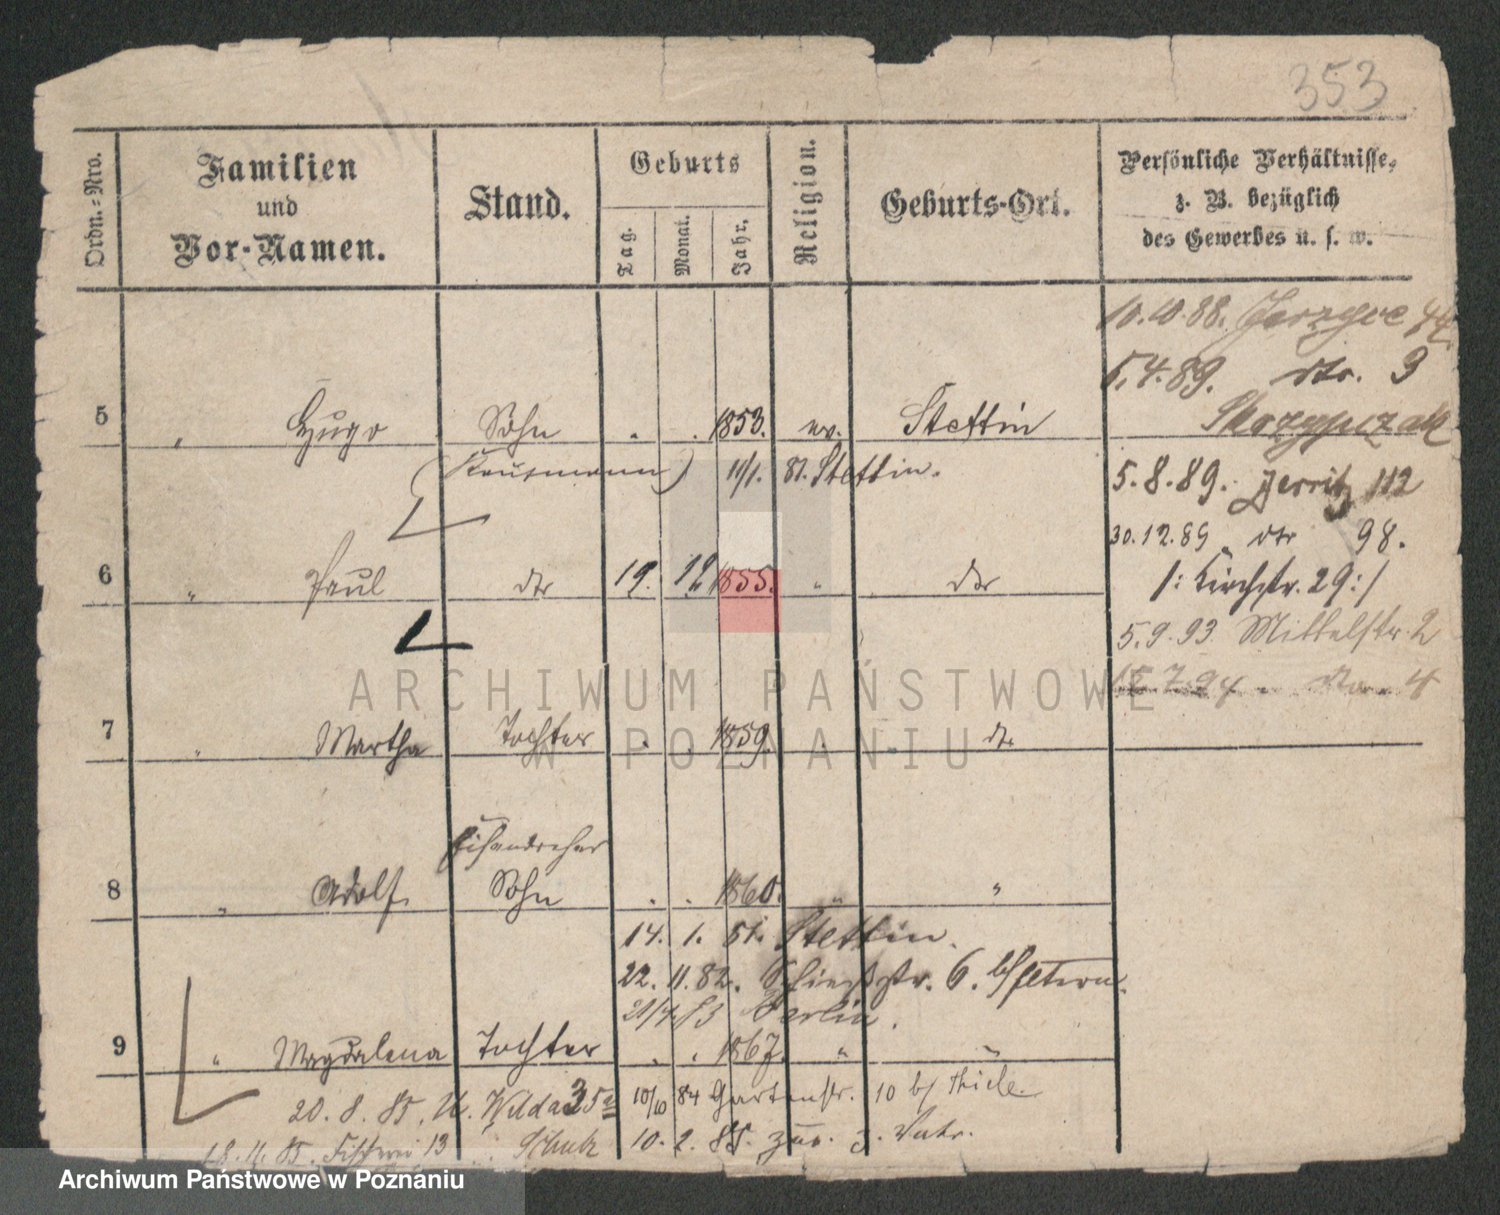 353
Ordn.-Nro.
Familien
und
Vor-Namen.
Stand.
Geburts
Tag.
Monat.
Jahr.
Religion.
Geburts-Ort.
Persönliche Verhältnisse,
z. B. bezüglich
des Gewerbes u. s. w.
10.10.88. Jerzyce 44.
5.4.89. dto. 3
Skozypczak
5 " Hugo Sohn . . 1853. ev. Stettin
(Kaufmann) 11/1. 81. Stettin.
5.8.89. Jersitz 112
30.12.89 dto 98.
6 " Paul dto 19. 12 1855. " dto
/: Kirchstr. 29 :/
5.9.93 Mittelstr. 2
15.7.94 - dto - 4
7 " Martha Tochter . . 1859. " dto
Eisendreher
8 " Adolf Sohn . . 1860. " "
14. 1. 81. Stettin.
22. 11. 82. 6. b/Eltern.
21/4. 83 Berlin.
9 " Magdalena Tochter . . 1867. " "
20. 8. 85. U. Wilda 35a 10/10 84 Gartenstr. 10 b/ Thiele
18. 11. 85. Fischerei 13 Schulz 10. 2. 85. zur. z. Vatr.
ARCHIWUM PAŃSTWOWE
W POZNANIU
Archiwum Państwowe w Poznaniu